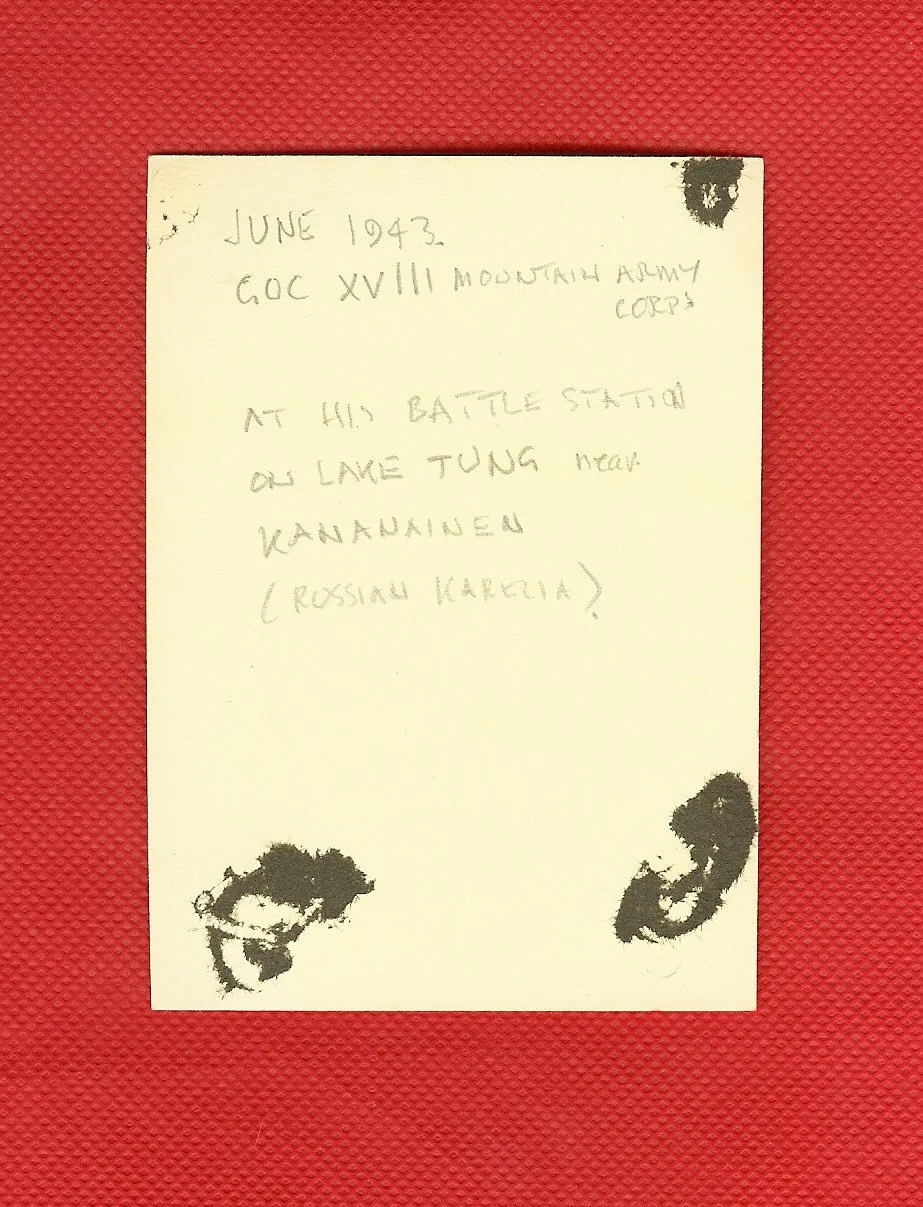 JUNE 1943.
GOC XVIII MOUNTAIN ARMY
CORPS
AT HIS BATTLE STATION
ON LAKE TUNG near
KANANAINEN
(RUSSIAN KARELIA)